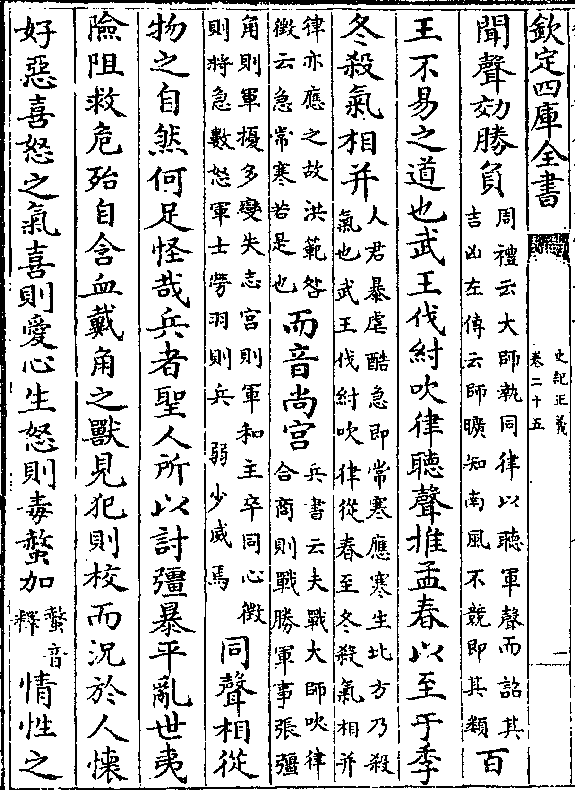 欽定四庫全書
史記正義
卷二十五
一
聞聲効勝負周禮云大師執同律以聽軍聲而詔其吉凶左傳云師曠知南風不競即其類百
王不易之道也武王伐紂吹律聽聲推孟春以至于季
冬殺氣相并人君暴虐酷急即常寒應寒生北方乃殺氣也武王伐紂吹律從春至冬殺氣相并
律亦應之故洪範咎徵云急常寒若是也而音尚宮兵書云夫戰大師吹律合商則戰勝軍事張彊
角則軍擾多變失志宮則軍和主卒同心徵則將急數怒軍士勞羽則兵弱少威焉同聲相從
物之自然何足怪哉兵者聖人所以討彊暴平亂世夷
險阻救危殆自含血戴角之獸見犯則校而況於人懷
好惡喜怒之氣喜則愛心生怒則毒螫加螫音釋情性之